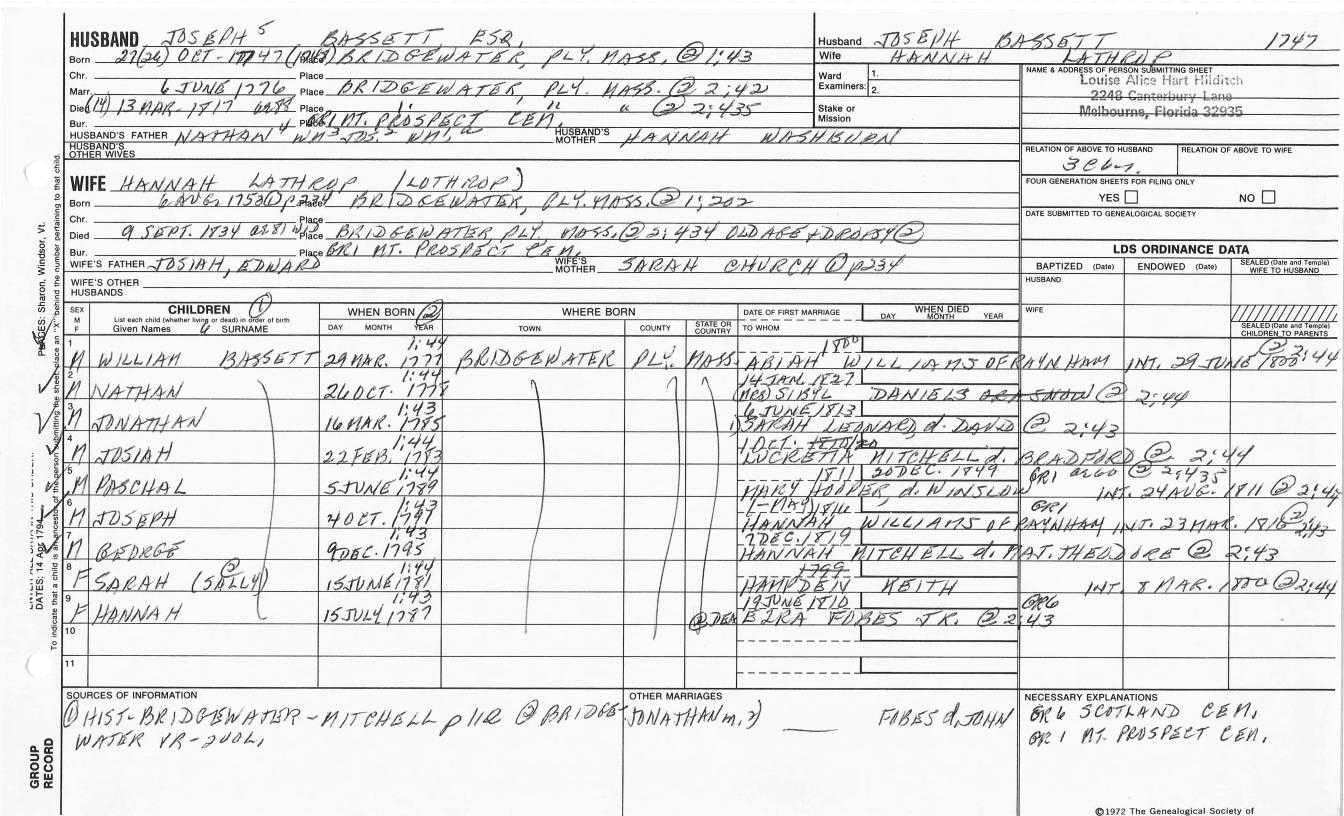 HUSBAND JOSEPH 5 BASSETT ESQ.
Born 27(26) OCT-1747(1748) Place BRIDGEWATER, PLY. MASS. @ 1:43
Chr. Place
Marr. 6 JUNE 1776 Place BRIDGEWATER, PLY. MASS. @ 2:42
Died (14) 13 MAR. 1817 Place " " " @ 2:435
Bur. Place GR1 MT. PROSPECT CEM.
HUSBAND'S FATHER NATHAN 4 WM 3 JOS. 2 WM. HUSBAND'S MOTHER HANNAH WASHBURN
HUSBAND'S OTHER WIVES
WIFE HANNAH LATHROP (LOTHROP)
Born 6 AUG. 1753 ① p 234 Place BRIDGEWATER, PLY. MASS. @ 1:202
Chr. Place
Died 9 SEPT. 1834 Place BRIDGEWATER, PLY. MASS. @ 2:434 OLD AGE & DROPSY ②
Bur. Place GR1 MT. PROSPECT CEM.
WIFE'S FATHER JOSIAH, EDWARD WIFE'S MOTHER SARAH CHURCH ① p234
WIFE'S OTHER HUSBANDS
Husband JOSEPH BASSETT 1747
Wife HANNAH LATHROP
Ward Examiners: 1.
2.
Stake or Mission
NAME & ADDRESS OF PERSON SUBMITTING SHEET
Louise Alice Hart Hilditch
2248 Canterbury Lane
Melbourne, Florida 32935
RELATION OF ABOVE TO HUSBAND RELATION OF ABOVE TO WIFE
FOUR GENERATION SHEETS FOR FILING ONLY
YES NO
DATE SUBMITTED TO GENEALOGICAL SOCIETY
LDS ORDINANCE DATA
BAPTIZED (Date) ENDOWED (Date) SEALED (Date and Temple) WIFE TO HUSBAND
HUSBAND
WIFE
SEALED (Date and Temple) CHILDREN TO PARENTS
SEX M F CHILDREN ① WHEN BORN ② WHERE BORN DATE OF FIRST MARRIAGE WHEN DIED
List each child (whether living or dead) in order of birth
Given Names SURNAME DAY MONTH YEAR TOWN COUNTY STATE OR COUNTRY TO WHOM DAY MONTH YEAR
1 1:44 1800
M WILLIAM BASSETT 29 MAR. 1777 BRIDGEWATER PLY. MASS. ABIAH WILLIAMS OF RAYNHAM INT. 29 JUNE 1800 ② 2:44
2 1:44 14 JAN. 1827
M NATHAN 26 OCT. 1778 (MRS) SIBYL DANIELS OR SNOW @ 2:44
3 1:43 6 JUNE 1813
M JONATHAN 16 MAR. 1785 1) SARAH LEONARD, d. DAVID @ 2:43
4 1:44 1 OCT.
M JOSIAH 22 FEB. 1783 LUCRETIA MITCHELL d. BRADFORD @ 2:44
5 1:44 1811 20 DEC. 1849 GR1 @ 2:435
M PASCHAL 5 JUNE 1789 MARY HOOPER, d. WINSLOW INT. 24 AUG. 1811 @ 2:44
6 1:43 GR1
M JOSEPH 4 OCT. 1791 HANNAH WILLIAMS OF RAYNHAM INT. 23 MAR. 1816 ② 2:43
7 1:43 7 DEC. 1819
M GEORGE 9 DEC. 1795 HANNAH MITCHELL d. NAT. THEODORE @ 2:43
8 1:44 1799
F SARAH (SALLY) ② 15 JUNE 1781 HAMPDEN KEITH INT. 8 MAR. 1800 @ 2:44
9 1:43 19 JUNE 1810 GR6
F HANNAH 15 JULY 1787 @ DEA EZRA FOBES JR. @ 2:43
10
11
SOURCES OF INFORMATION
① HIST-BRIDGEWATER-MITCHELL p 112 ② BRIDGE-
WATER VR-2VOL.
OTHER MARRIAGES
JONATHAN m. 2) FOBES d. JOHN
NECESSARY EXPLANATIONS
GR6 SCOTLAND CEM.
GR1 MT. PROSPECT CEM.
©1972 The Genealogical Society of
PLACES: Sharon, Windsor, Vt.
DATES: 14 Apr 1794
To indicate that a child is an ancestor of the person submitting the sheet place an "X" behind the number pertaining to that child.
GROUP RECORD